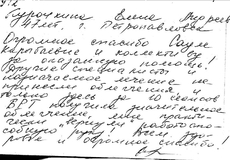 Бурочкина Елена Андреев
лет, г. Петропавловск
Огромное спасибо Сауле
и коллекти
за оказанную помощь!
Другие специалисты и
назначаемое лечение не
принесли облегчения и
только здесь за 10 сеансов
ВРТ получила значительное
облегчение, мне практи-
чески вернули работоспо-
собную руку! Всем здо-
ровья и огромное спасибо!